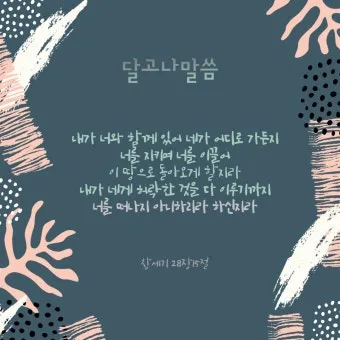 달고나말씀
내가 너와 함께 있어 네가 어디로 가든지
너를 지키며 너를 이끌어
이 땅으로 돌아오게 할지라
내가 네게 허락한 것을 다 이루기까지
너를 떠나지 아니하리라 하신지라
창세기 28장15절